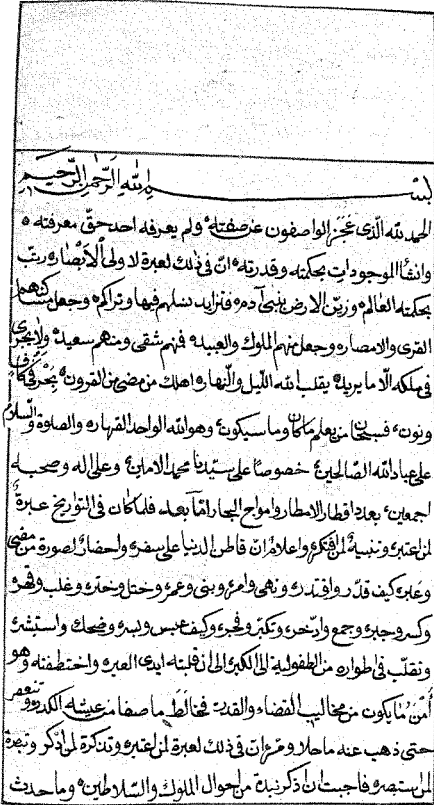 بسم الله الرحمن الرحيم
الحمد لله الّذي عَجَز الواصفون عن صفته ولم يعرفه احد حقّ معرفته
وانشأ الموجودات بحكمته وقدرته انّ في ذلك لعبرة لاولى الابصار ورتّب
بحكمته العالم وزيّن الارض ببني آدم فتزايد نسلهم فيها وتراكم وجعل مساكنهم
القرى والامصار وجعل منهم الملوك والعبيد فمنهم شقى ومنهم سعيد ولا يجرى
فى ملكه الّا ما يريد يقلب الله الليل والنّهار اهلك من مضى من القرون بحرفى كاف
ونون فسبحان من يعلم ما كان وما سيكون وهو الله الواحد القهار والصلوة والسلام
على عباد الله الصّالحين خصوصًا على سيّدنا محمد الامين وعلى اله وصحبه
اجمعين بعدد اقطار الامطار وامواج البحار امّا بعد فلما كان فى التّواريخ عبرة
لمن اعتبر وتنبيهٌ لمن افتكر واعلام انّ قاطن الدنيا على سفر واحضار لصورة من مضى
وغبر كيف قدّر واقتدر ونهى وامر وبنى وعمر وختل وختر وغلب وقهر
وكسر وجبر وجمع وادّخر وتكبّر وفخر وكيف عبس وبسر وضحك واستبشر
وتقلّب فى اطواره من الطفولية الى الكبر الى ان قلبته ايدى العبر واختطفته وهو
أمن ما يكون من مخاليب القضاء والقدر فخالط ما صفا من عيشه الكدر وتنغص
حتى ذهب عنه ما حلا ومرّ انّ فى ذلك لعبرة لمن اعتبر وتذكرة لمن اذّكر وتبصرة
لمن استبصر فاحببت ان اذكر نبذة من احوال الملوك والسّلاطين وما حدث